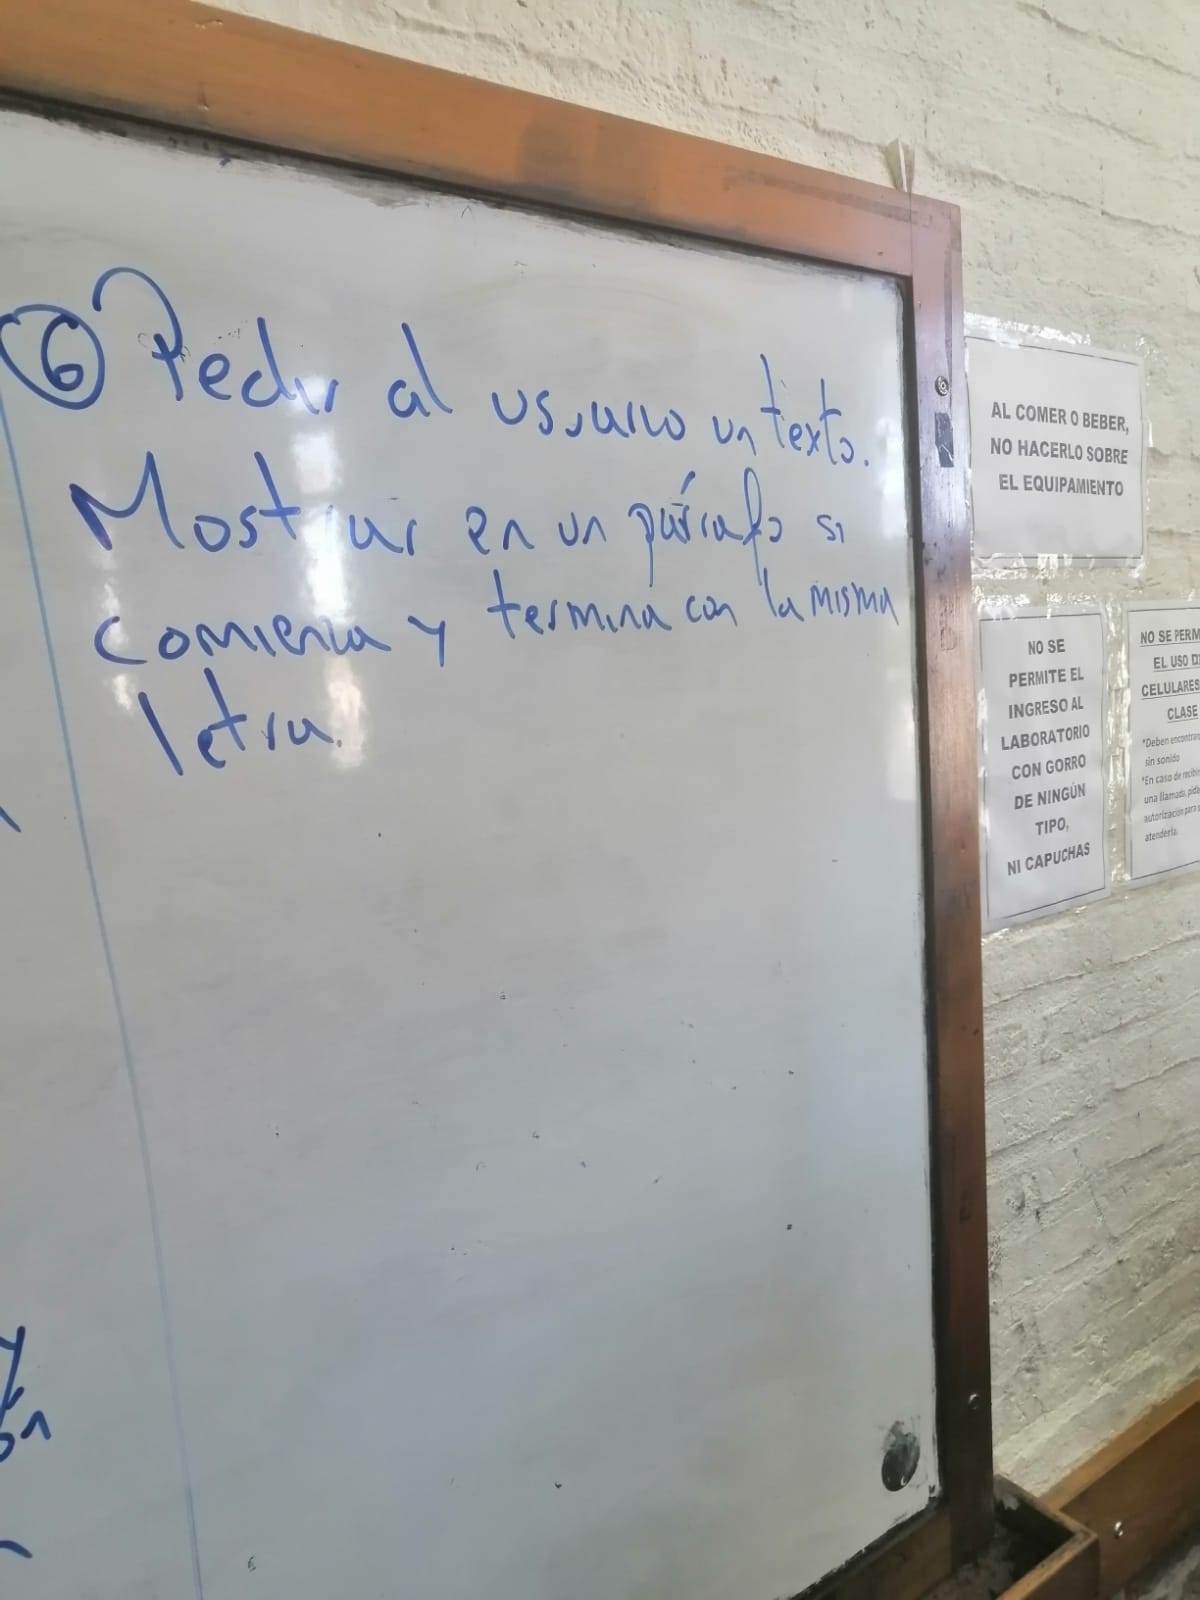 6 Pedir al usuario un texto.
Mostrar en un párrafo si
comienza y termina con la misma
letra.
y
ón
AL COMER O BEBER,
NO HACERLO SOBRE
EL EQUIPAMIENTO
NO SE
PERMITE EL
INGRESO AL
LABORATORIO
CON GORRO
DE NINGÚN
TIPO,
NI CAPUCHAS
NO SE PERM
EL USO D
CELULARES
CLASE
*Deben encontrar
sin sonido
*En caso de recibi
una llamada, pida
autorización para
atenderla.